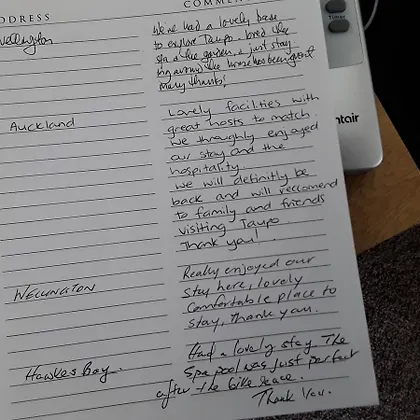 DDRESS
COMME
Timer
ntair
Wellington
We've had a lovely base
to explore Taupo. loved the
spa & the garden, & just stay
ing around the house has been great
Many thanks!
Auckland
Lovely facilities with
great hosts to match.
We throughly enjoyed
our stay and the
hospitality.
we will definitly be
back and will reccomend
to family and friends
visiting Taupo
Thank you!
WELLINGTON
Really enjoyed our
stay here, lovely
Comfortable place to
stay, Thank you.
Hawkes Bay.
Had a lovely stay. The
Spa pool was just perfect
after the bike race.
Thank You.